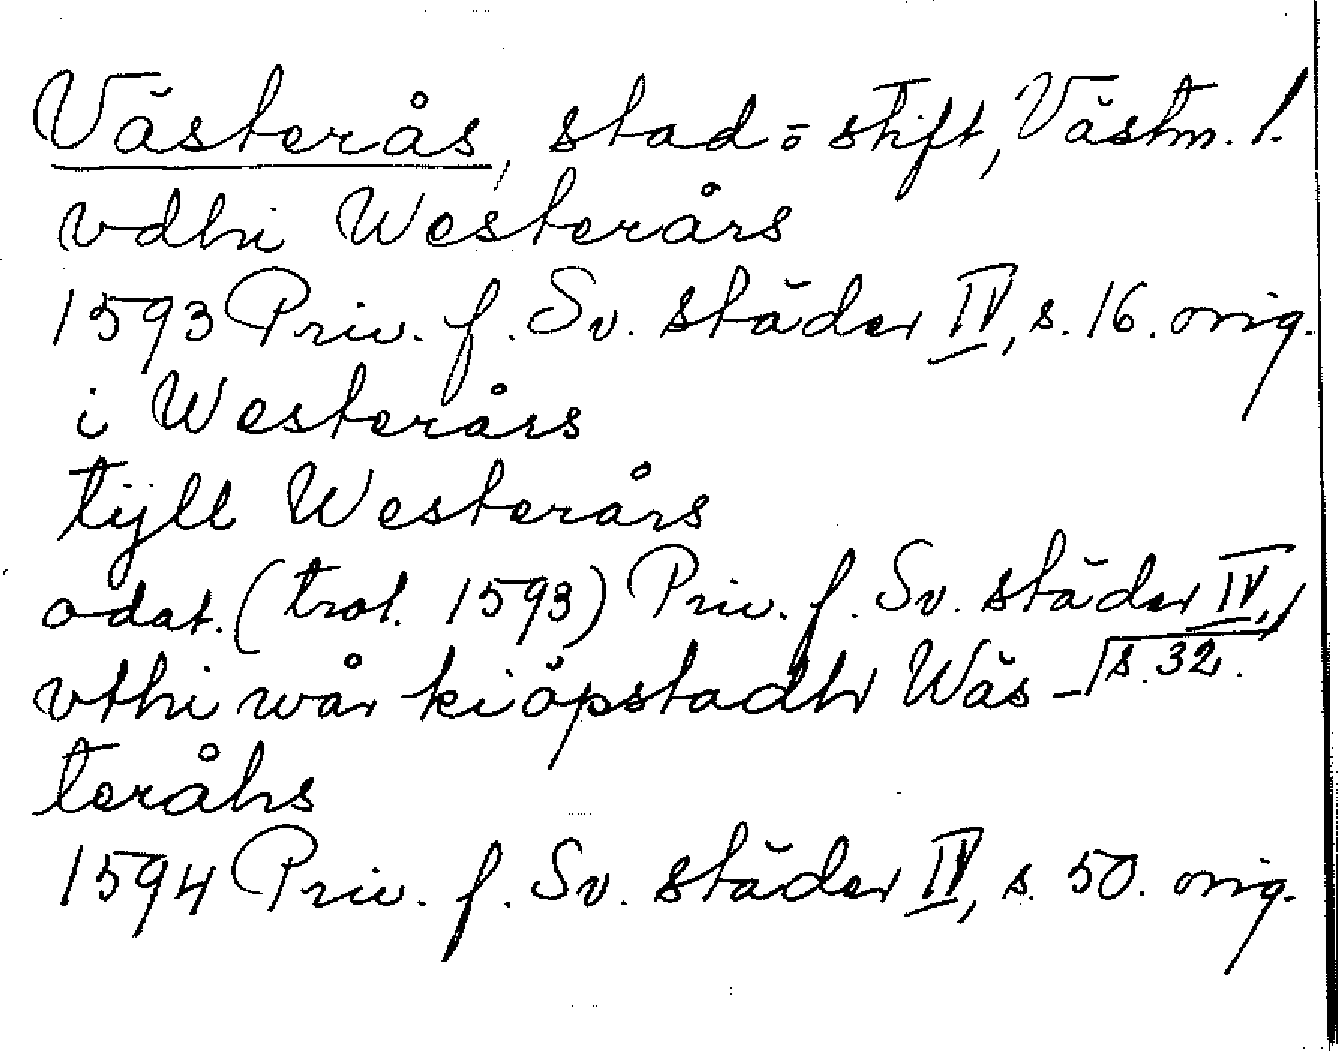 Västerås, stad o stift, Västm. l.
vdhi Westerårs
1593 Priv. f. Sv. städer IV, s. 16. orig.
i Westerårs
tijll Westerårs
odat. (trol. 1593) Priv. f. Sv. städer IV, s. 32.
vthi wår kiöpstadhr Wäs-
teråhs
1594 Priv. f. Sv. städer IV, s. 50. orig.